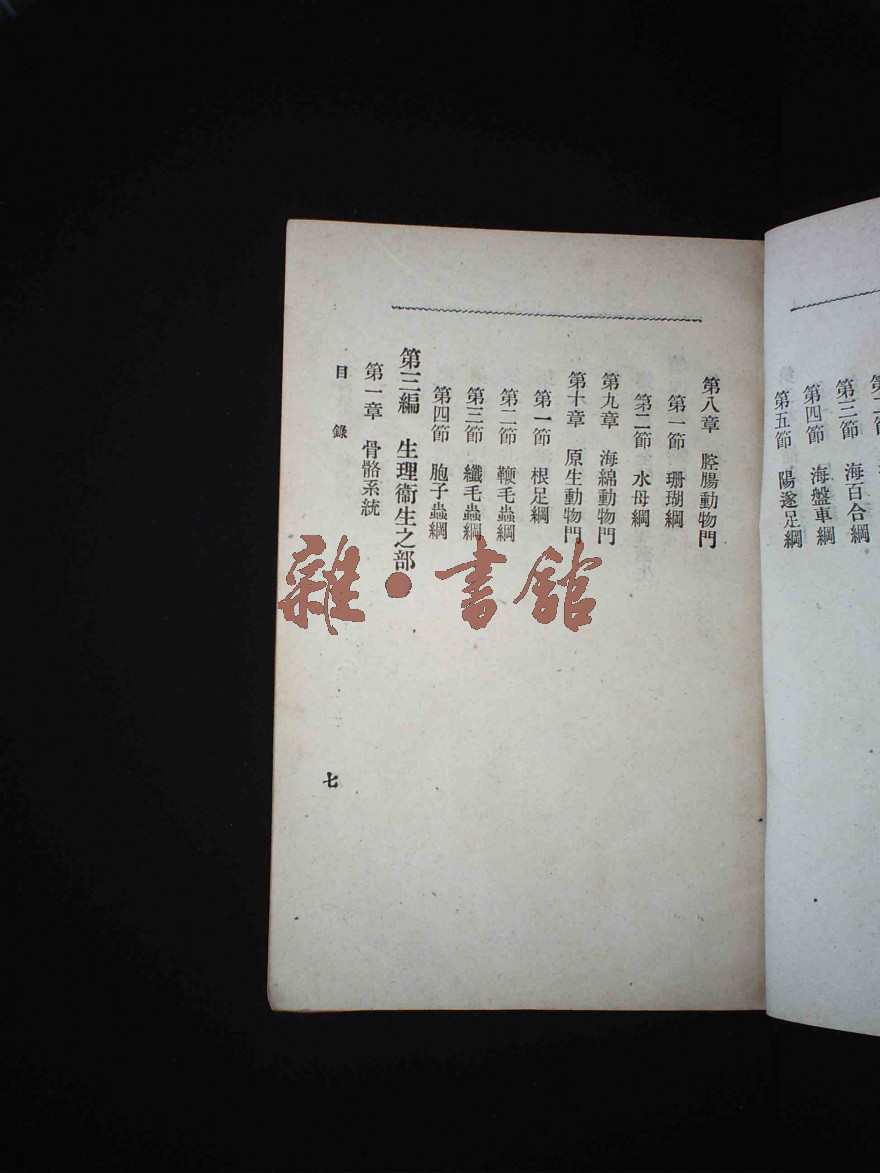 三節 海百合綱
第四節 海盤車綱
第五節 陽遂足綱
第八章 腔腸動物門
第一節 珊瑚綱
第二節 水母綱
第九章 海綿動物門
第十章 原生動物門
第一節 根足綱
第二節 鞭毛蟲綱
第三節 纖毛蟲綱
第四節 胞子蟲綱
第三編 生理衞生之部
第一章 骨骼系統
目錄
七
雜·書館